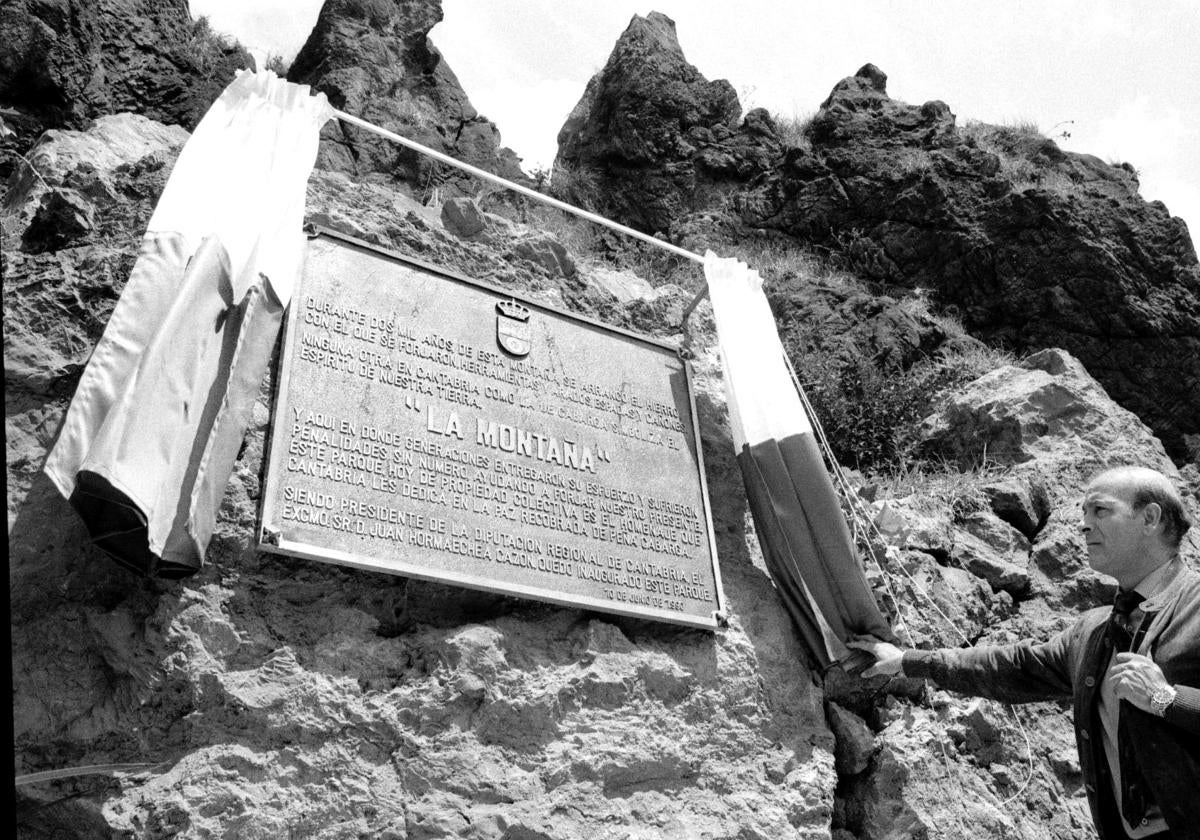 DURANTE DOS MIL AÑOS DE ESTA MONTAÑA SE ARRANCO EL HIERRO,
CON EL QUE SE FORJARON HERRAMIENTAS Y ARADOS, ESPADAS Y CAÑONES.
NINGUNA OTRA EN CANTABRIA COMO LA DE CABARGA SIMBOLIZA EL
ESPIRITU DE NUESTRA TIERRA.
"LA MONTAÑA"
Y AQUI EN DONDE GENERACIONES ENTREGARON SU ESFUERZO Y SUFRIERON
PENALIDADES SIN NUMERO, AYUDANDO A FORJAR NUESTRO PRESENTE
ESTE PARQUE HOY DE PROPIEDAD COLECTIVA ES EL HOMENAJE QUE
CANTABRIA LES DEDICA EN LA PAZ RECOBRADA DE PEÑA CABARGA.
SIENDO PRESIDENTE DE LA DIPUTACION REGIONAL DE CANTABRIA, EL
EXCMO. SR. D. JUAN HORMAECHEA CAZON, QUEDO INAUGURADO ESTE PARQUE.
10 DE JUNIO DE 1990